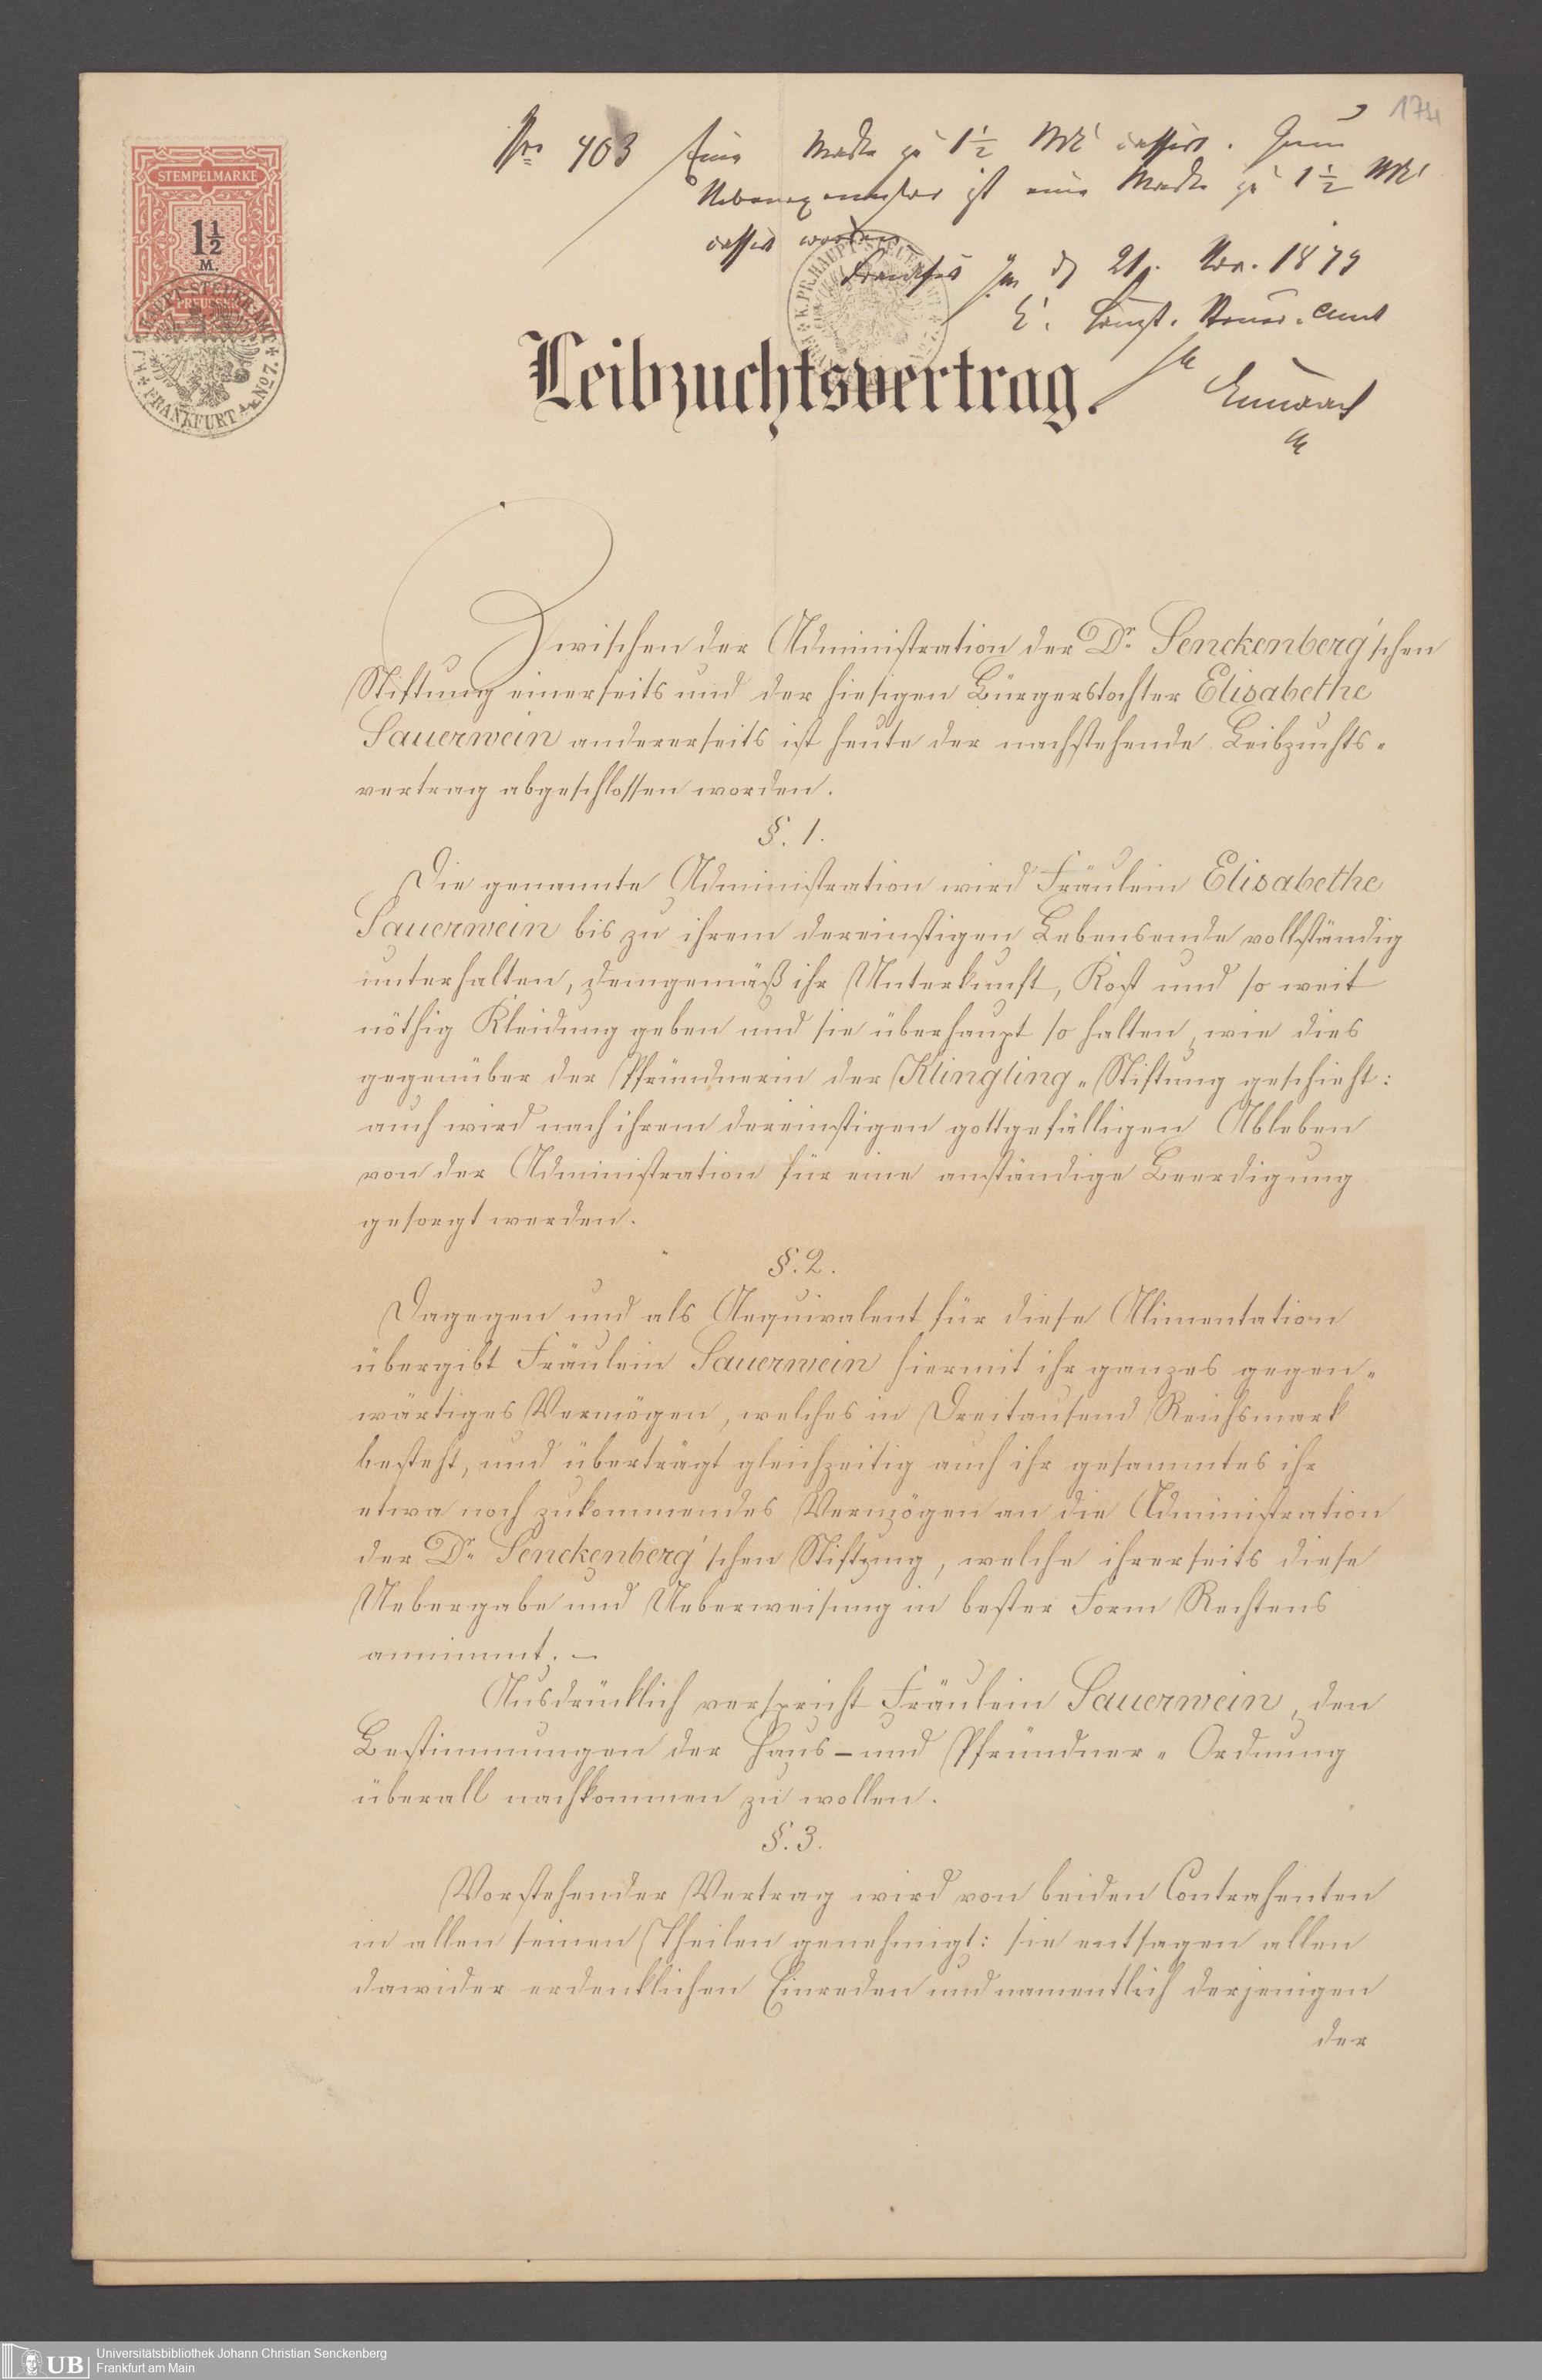 174
No 403 Eine Marke zu 1½ Mk cassirt. Zum
Nebenexemplar ist eine Marke zu 1½ Mk
cassirt worden
Frankfurt 21. Nov. 1879
Haupt-Steuer-Amt
STEMPELMARKE
1½
M.
PREUSSEN
HAUPT-STEUER-AMT
FRANKFURT a/M No 7.
K.PR.HAUPT-STEUER
Leibzuchtsvertrag.
Zwischen der Administration der Dr. Senckenberg'schen
Stiftung einerseits und der hiesigen Bürgerstochter Elisabethe
Sauerwein andererseits ist heute der nachstehende Leibzuchts-
vertrag abgeschlossen worden.
§. 1.
Die genannte Administration wird Fräulein Elisabethe
Sauerwein bis zu ihrem dereinstigen Lebensende vollständig
unterhalten, demgemäß ihr Unterkunft, Kost und so weit
nöthig Kleidung geben und sie überhaupt so halten, wie dies
gegenüber der Pfründnerin der Klingling-Stiftung geschieht:
auch wird nach ihrem dereinstigen gottgefälligen Ableben
von der Administration für eine anständige Beerdigung
gesorgt werden.
§. 2.
Dagegen und als Aequivalent für diese Alimentation
übergibt Fräulein Sauerwein hiermit ihr ganzes gegen-
wärtiges Vermögen, welches in Dreitausend Reichsmark
besteht, und überträgt gleichzeitig auch ihr gesammtes ihr
etwa noch zukommendes Vermögen an die Administration
der Dr. Senckenberg'schen Stiftung, welche ihrerseits diese
Uebergabe und Ueberweisung in bester Form Rechtens
annimmt. –
Ausdrücklich verspricht Fräulein Sauerwein, den
Bestimmungen der Haus- und Pfründner-Ordnung
überall nachkommen zu wollen.
§. 3.
Vorstehender Vertrag wird von beiden Contrahenten
in allen seinen Theilen genehmigt: sie entsagen allen
dawider erdenklichen Einreden und namentlich derjenigen
der
UB
Universitätsbibliothek Johann Christian Senckenberg
Frankfurt am Main